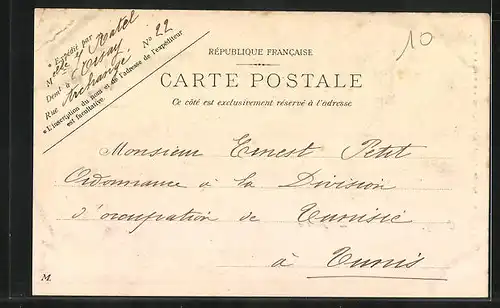 * Expédié par
Melle J. Ratel
Demt à Orsay
Rue Archangé No 22
* L'inscription du nom et de l'adresse de l'expéditeur
est facultative.
10
RÉPUBLIQUE FRANÇAISE
CARTE POSTALE
Ce côté est exclusivement réservé à l'adresse
Monsieur Ernest Petit
Ordonnance à la Division
d'occupation de Tunisie
à Tunis
M.